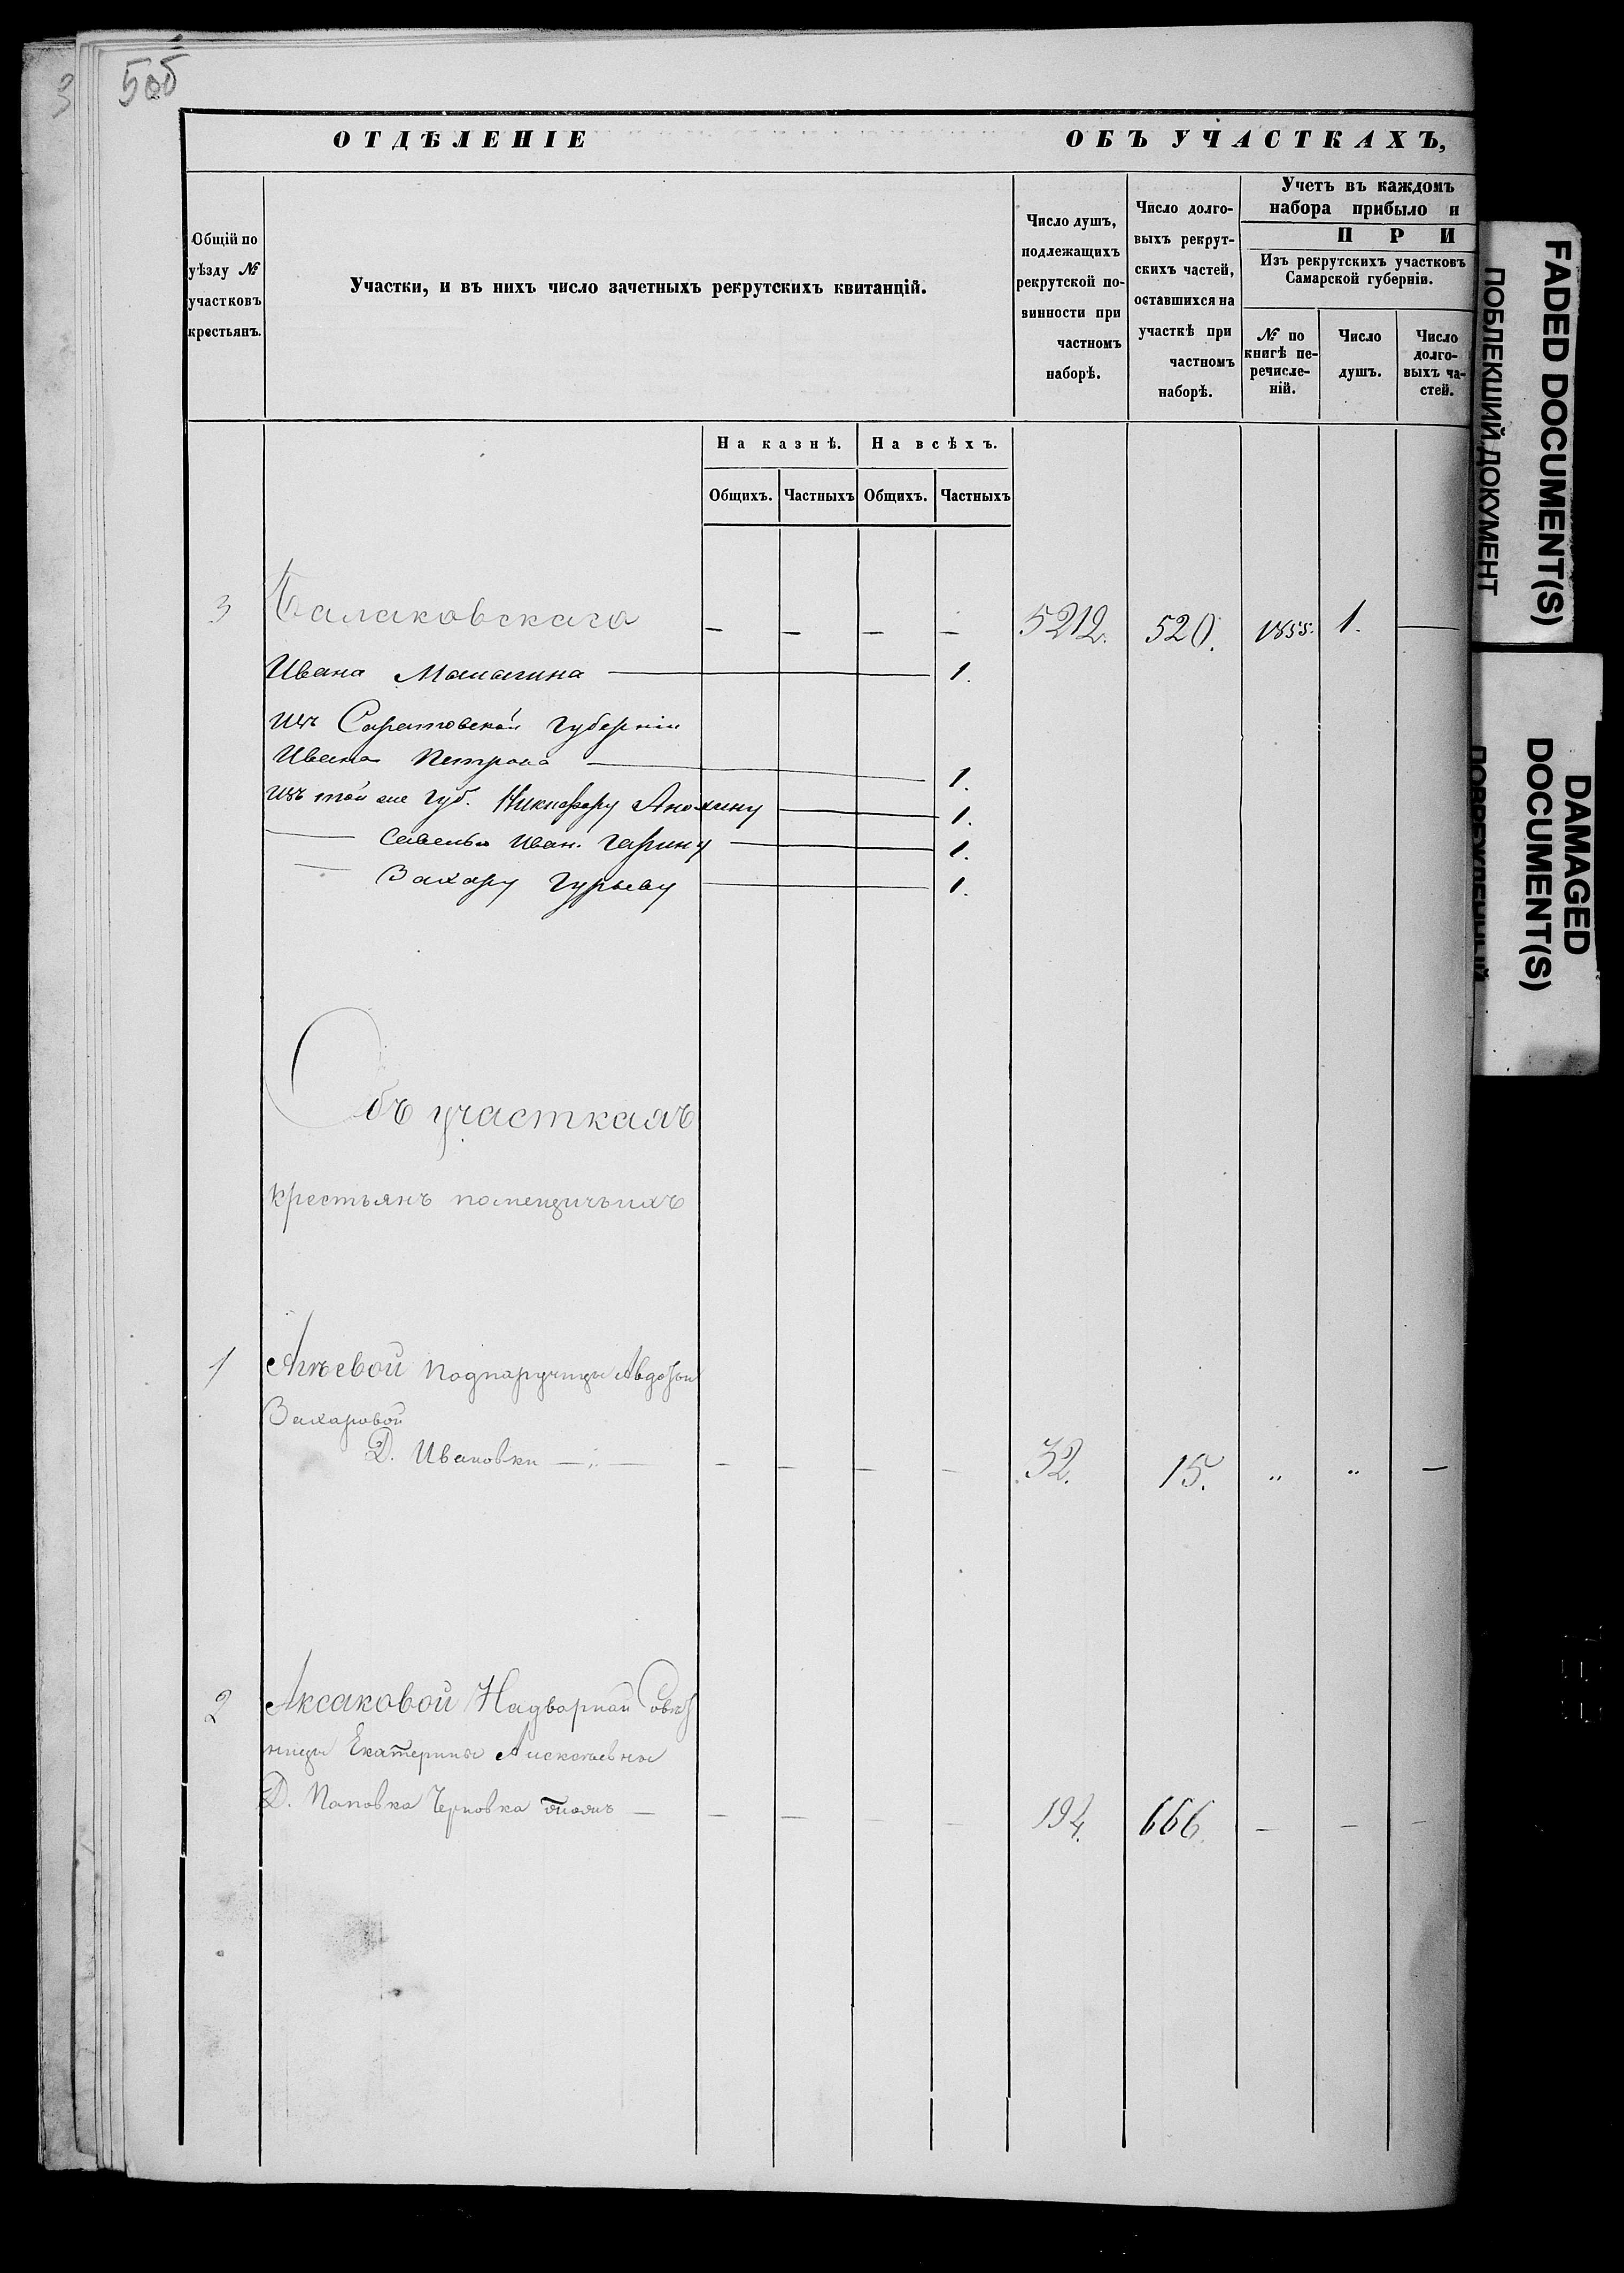 5об
3
ОТДѢЛЕНІЕ ОБЪ УЧАСТКАХЪ,
Общій по уѣзду № участковъ крестьянъ.
Участки, и въ нихъ число зачетныхъ рекрутскихъ квитанцій.
Число душъ, подлежащихъ рекрутской повинности при частномъ наборѣ.
Число долговыхъ рекрутскихъ частей, оставшихся на участкѣ при частномъ наборѣ.
Учетъ въ каждомъ
набора прибыло и
П Р И
Изъ рекрутскихъ участковъ
Самарской губерніи.
№ по книгѣ перечисленій.
Число душъ.
Число долговыхъ частей.
На казнѣ. На всѣхъ.
Общихъ. Частныхъ Общихъ. Частныхъ
3 Балаковскаго — — — — 5212. 520. 1855. 1. —
Ивана — 1.
изъ Саратовской губерніи
Ивана Петрова — 1.
изъ той же губ. Никифору Анохину — 1.
— Савелью Иван. Гарину — 1.
— Захару Гурьеву — 1.
Объ участкахъ
крестьянъ помещичьихъ
1 Подпаручицы Авдотьи
Захаровой
Д. Ивановки — — — — — 32. 15. „ „ —
2 Аксаковой Надворной Совѣт
ницы Екатерины Алексѣевны
Д. Поповка Черновка тожъ — — — — — 194. 666. — — —
FADED DOCUMENT(S)
ПОБЛЕКШИЙ ДОКУМЕНТ
DAMAGED
DOCUMENT(S)